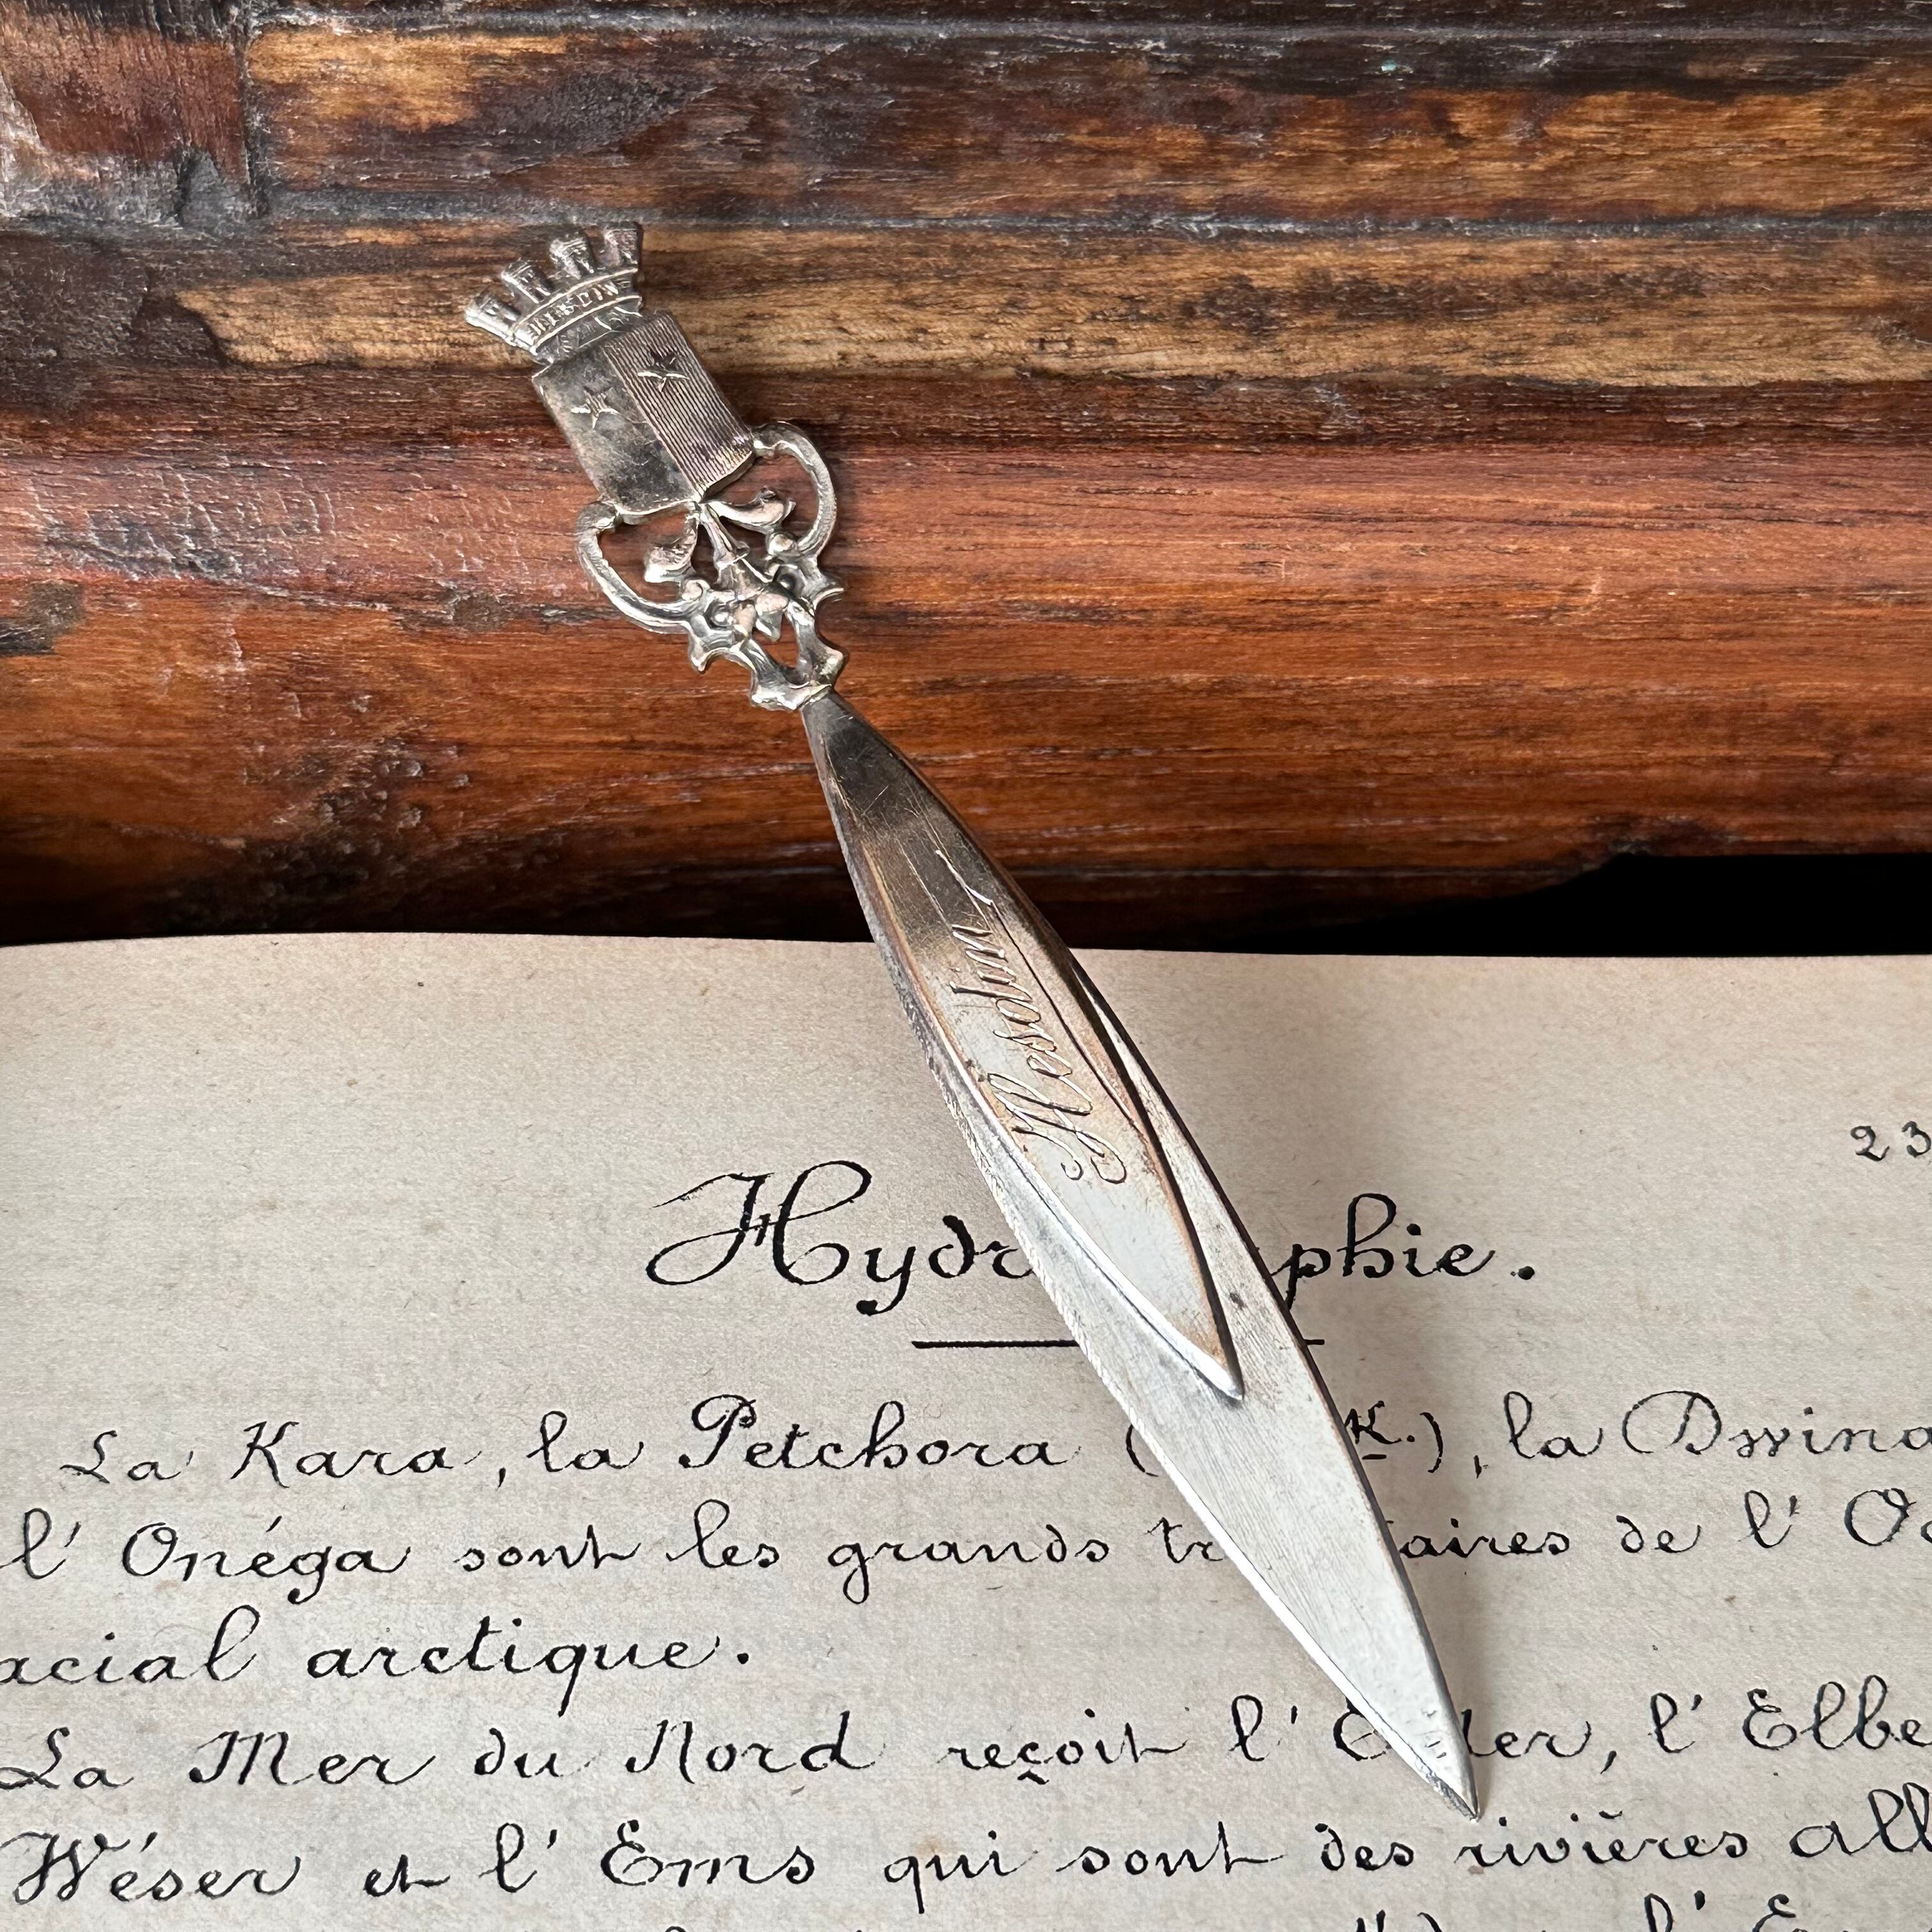 HESDIN
Hesdin
23
Hydr phie.
La Kara, la Petchora ( K.), la Dwina
l'Onéga sont les grands tr taires de l'Oc
acial arctique.
La Mer du Nord reçoit l'E der, l'Elbe
Wéser et l'Ems qui sont des rivières all